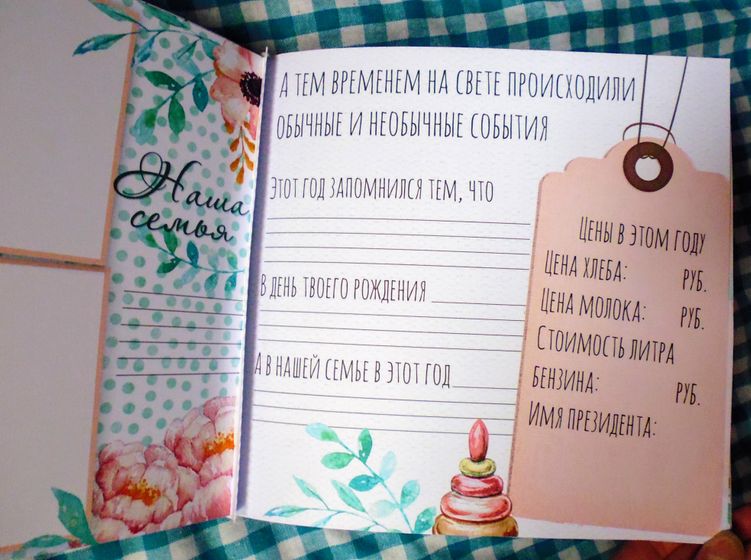 Наша
семья
А ТЕМ ВРЕМЕНЕМ НА СВЕТЕ ПРОИСХОДИЛИ
ОБЫЧНЫЕ И НЕОБЫЧНЫЕ СОБЫТИЯ
ЭТОТ ГОД ЗАПОМНИЛСЯ ТЕМ, ЧТО
В ДЕНЬ ТВОЕГО РОЖДЕНИЯ
А В НАШЕЙ СЕМЬЕ В ЭТОТ ГОД
ЦЕНЫ В ЭТОМ ГОДУ
ЦЕНА ХЛЕБА: РУБ.
ЦЕНА МОЛОКА: РУБ.
СТОИМОСТЬ ЛИТРА
БЕНЗИНА: РУБ.
ИМЯ ПРЕЗИДЕНТА: